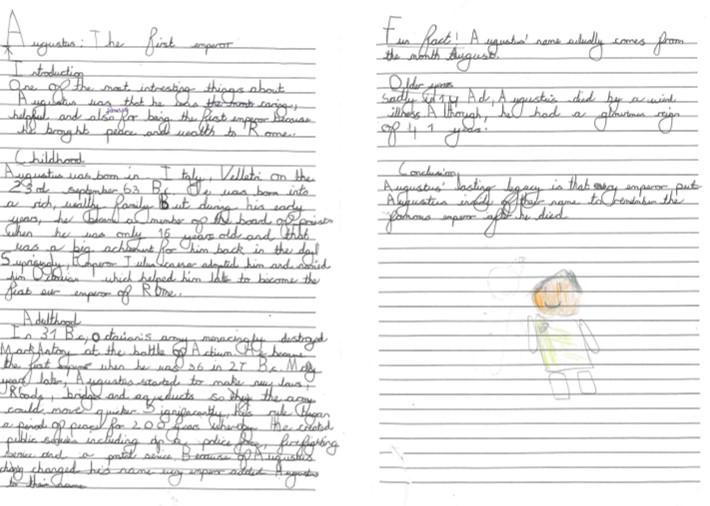 Augustus: The first emperor
Introduction
One of the most intresting things about
Augustus was that he was the most caring,
helpful and also for being the first emperor because
he brought peace and wealth to Rome.
Childhood
Augustus was born in Italy, Velletri on the
23rd september 63 Bc. He was born into
a rich, family But during his early
years, he a member of the board of
when he was only 16 years old and that
was a big for him back in the day
emperor adopted him and named
him which helped him later to become the
first emperor of Rome.
Adulthood
In 31 Bc, army menacingly destroyed
at the battle of Actium. He became
the first when he was 36 in 27 Bc.
years later, Augustus started to make new laws,
bridges and so the army
could move quicker Significantly, his rule began
a period of peace for 200 years he created
public including of a police firefighting
and a Because of Augustus
changed his name emperor added
to their name
Fun fact! Augustus' name actually comes from
the month August.
Older years
Sadly in 14 Ad, Augustus died by a
illness Although, he had a reign
of 41 years.
Conclusion
Augustus' lasting legacy is that emperor put
Augustus of their name to remember the
famous emperor after he died